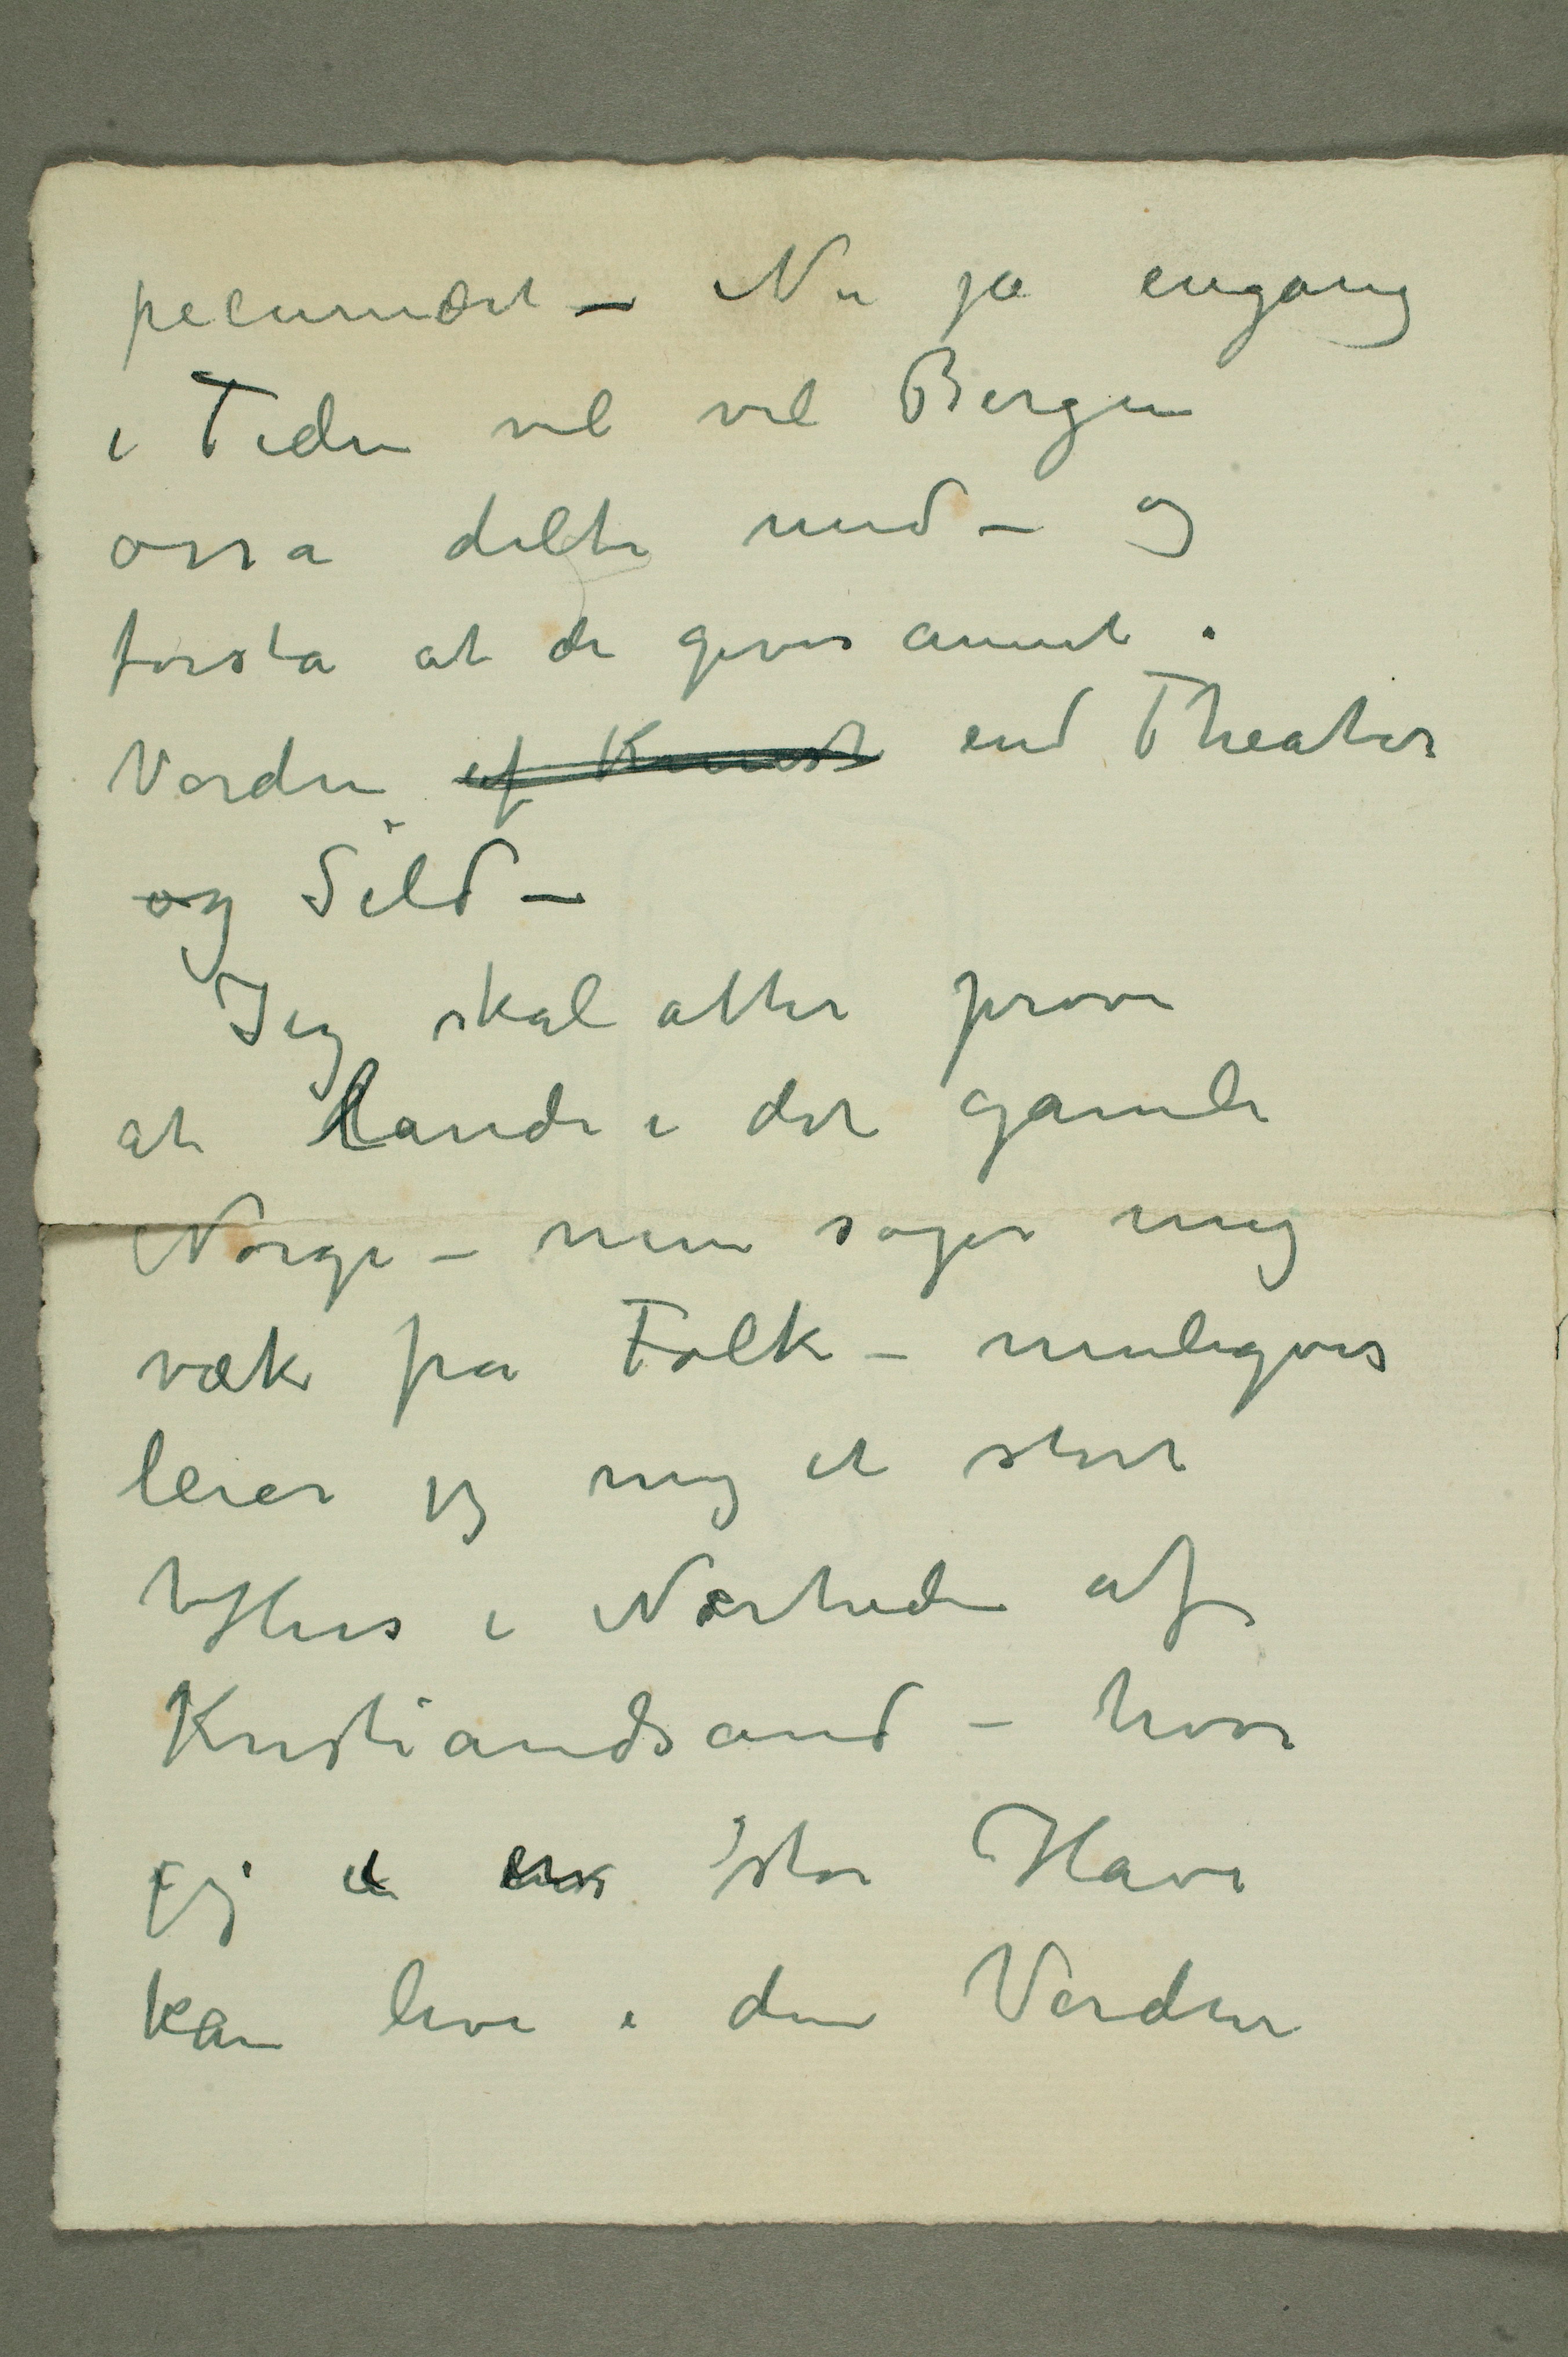 pecuniært – Nu ja engang
i Tiden vil vel Bergen
ossa delta med – og
forsta at de gives annet i
Verden af Kunst end Theater
og Sild –
Jeg skal atter prøve
at lande i det gamle
Norge – men søger mig
væk fra Folk – muligvis
leier jeg mig et stort
Hus i Nærheden af
Kristiandsand – hvor
jeg i en stor Have
kan leve i den Verden